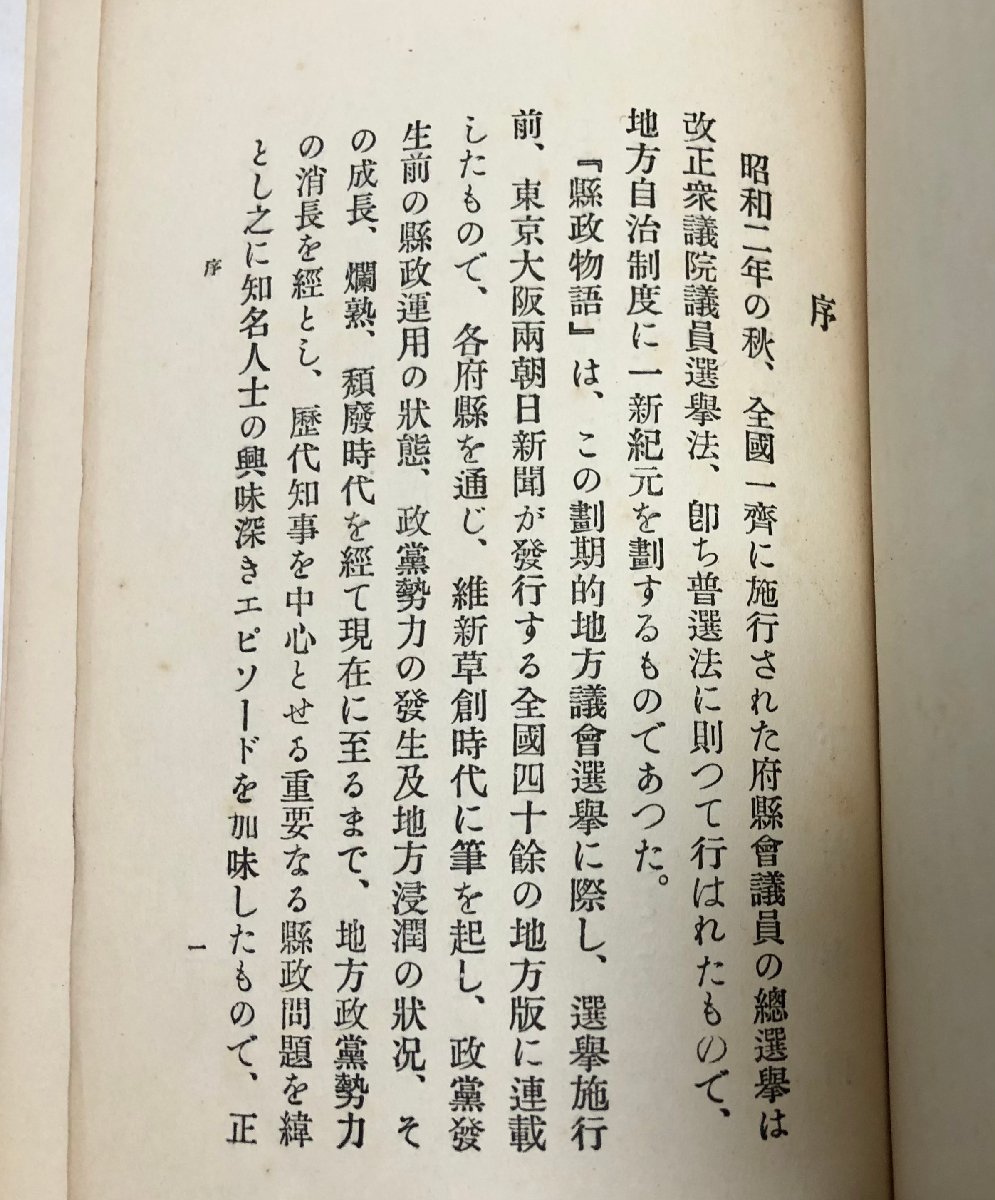 序
昭和二年の秋、全國一齊に施行された府縣會議員の總選擧は
改正衆議院議員選擧法、卽ち普選法に則つて行はれたもので、
地方自治制度に一新紀元を劃するものであつた。
『縣政物語』は、この劃期的地方議會選擧に際し、選擧施行
前、東京大阪兩朝日新聞が發行する全國四十餘の地方版に連載
したもので、各府縣を通じ、維新草創時代に筆を起し、政黨發
生前の縣政運用の狀態、政黨勢力の發生及地方浸潤の狀況、そ
の成長、爛熟、頽廢時代を經て現在に至るまで、地方政黨勢力
の消長を經とし、歷代知事を中心とせる重要なる縣政問題を緯
とし之に知名人士の興味深きエピソードを加味したもので、正
序
一